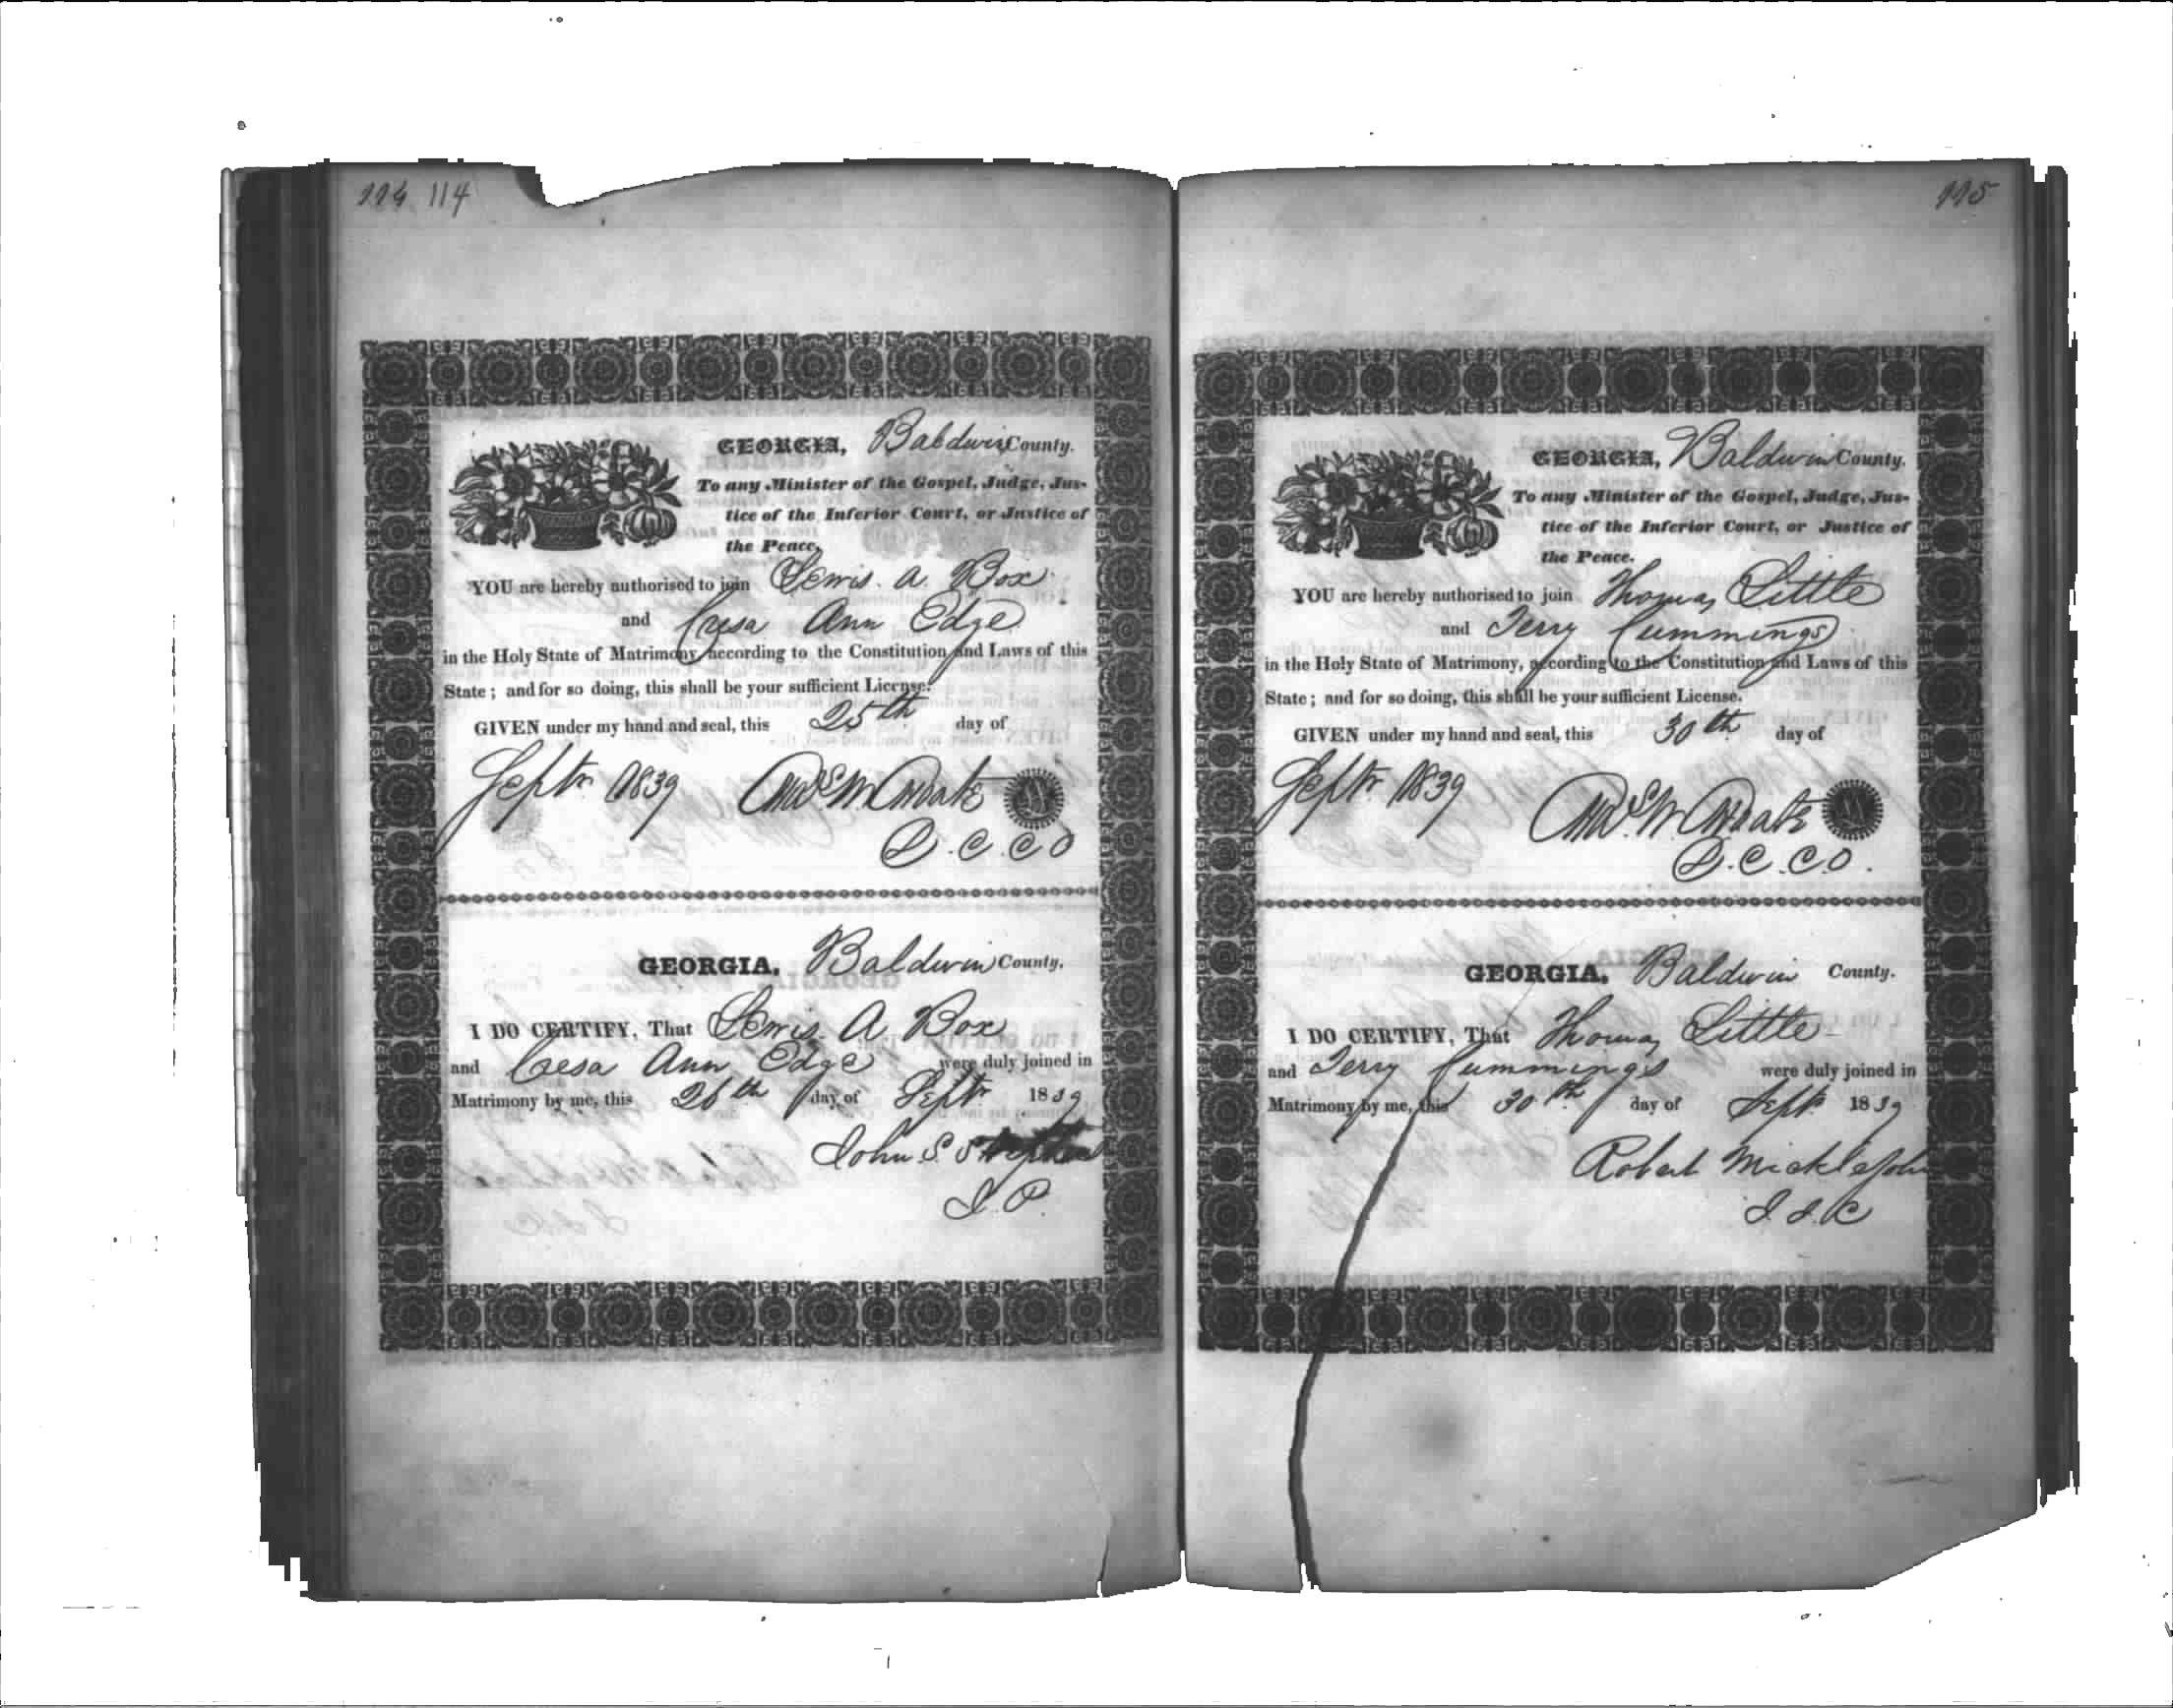 114 114
GEORGIA, Baldwin County.
To any Minister of the Gospel, Judge, Jus-
tice of the Inferior Court, or Justice of
the Peace.
YOU are hereby authorised to join Lewis. A. Box
and Cresa Ann Edge
in the Holy State of Matrimony, according to the Constitution and Laws of this
State; and for so doing, this shall be your sufficient License.
GIVEN under my hand and seal, this 25th day of
Septr 1839
D. C. C O
GEORGIA, Baldwin County.
I DO CERTIFY, That Lewis. A Box
and Cresa Ann Edge were duly joined in
Matrimony by me, this 26th day of Septr 1839
John S.
J. P.
115
GEORGIA, Baldwin County.
To any Minister of the Gospel, Judge, Jus-
tice of the Inferior Court, or Justice of
the Peace.
YOU are hereby authorised to join Thomas Little
and Terry Cummings
in the Holy State of Matrimony, according to the Constitution and Laws of this
State; and for so doing, this shall be your sufficient License.
GIVEN under my hand and seal, this 30th day of
Septr 1839
D. C. C. O.
GEORGIA, Baldwin County.
I DO CERTIFY, That Thomas Little
and Terry Cummings were duly joined in
Matrimony by me, this 30th day of Septr 1839
Robert Micklejohn
J. I. C